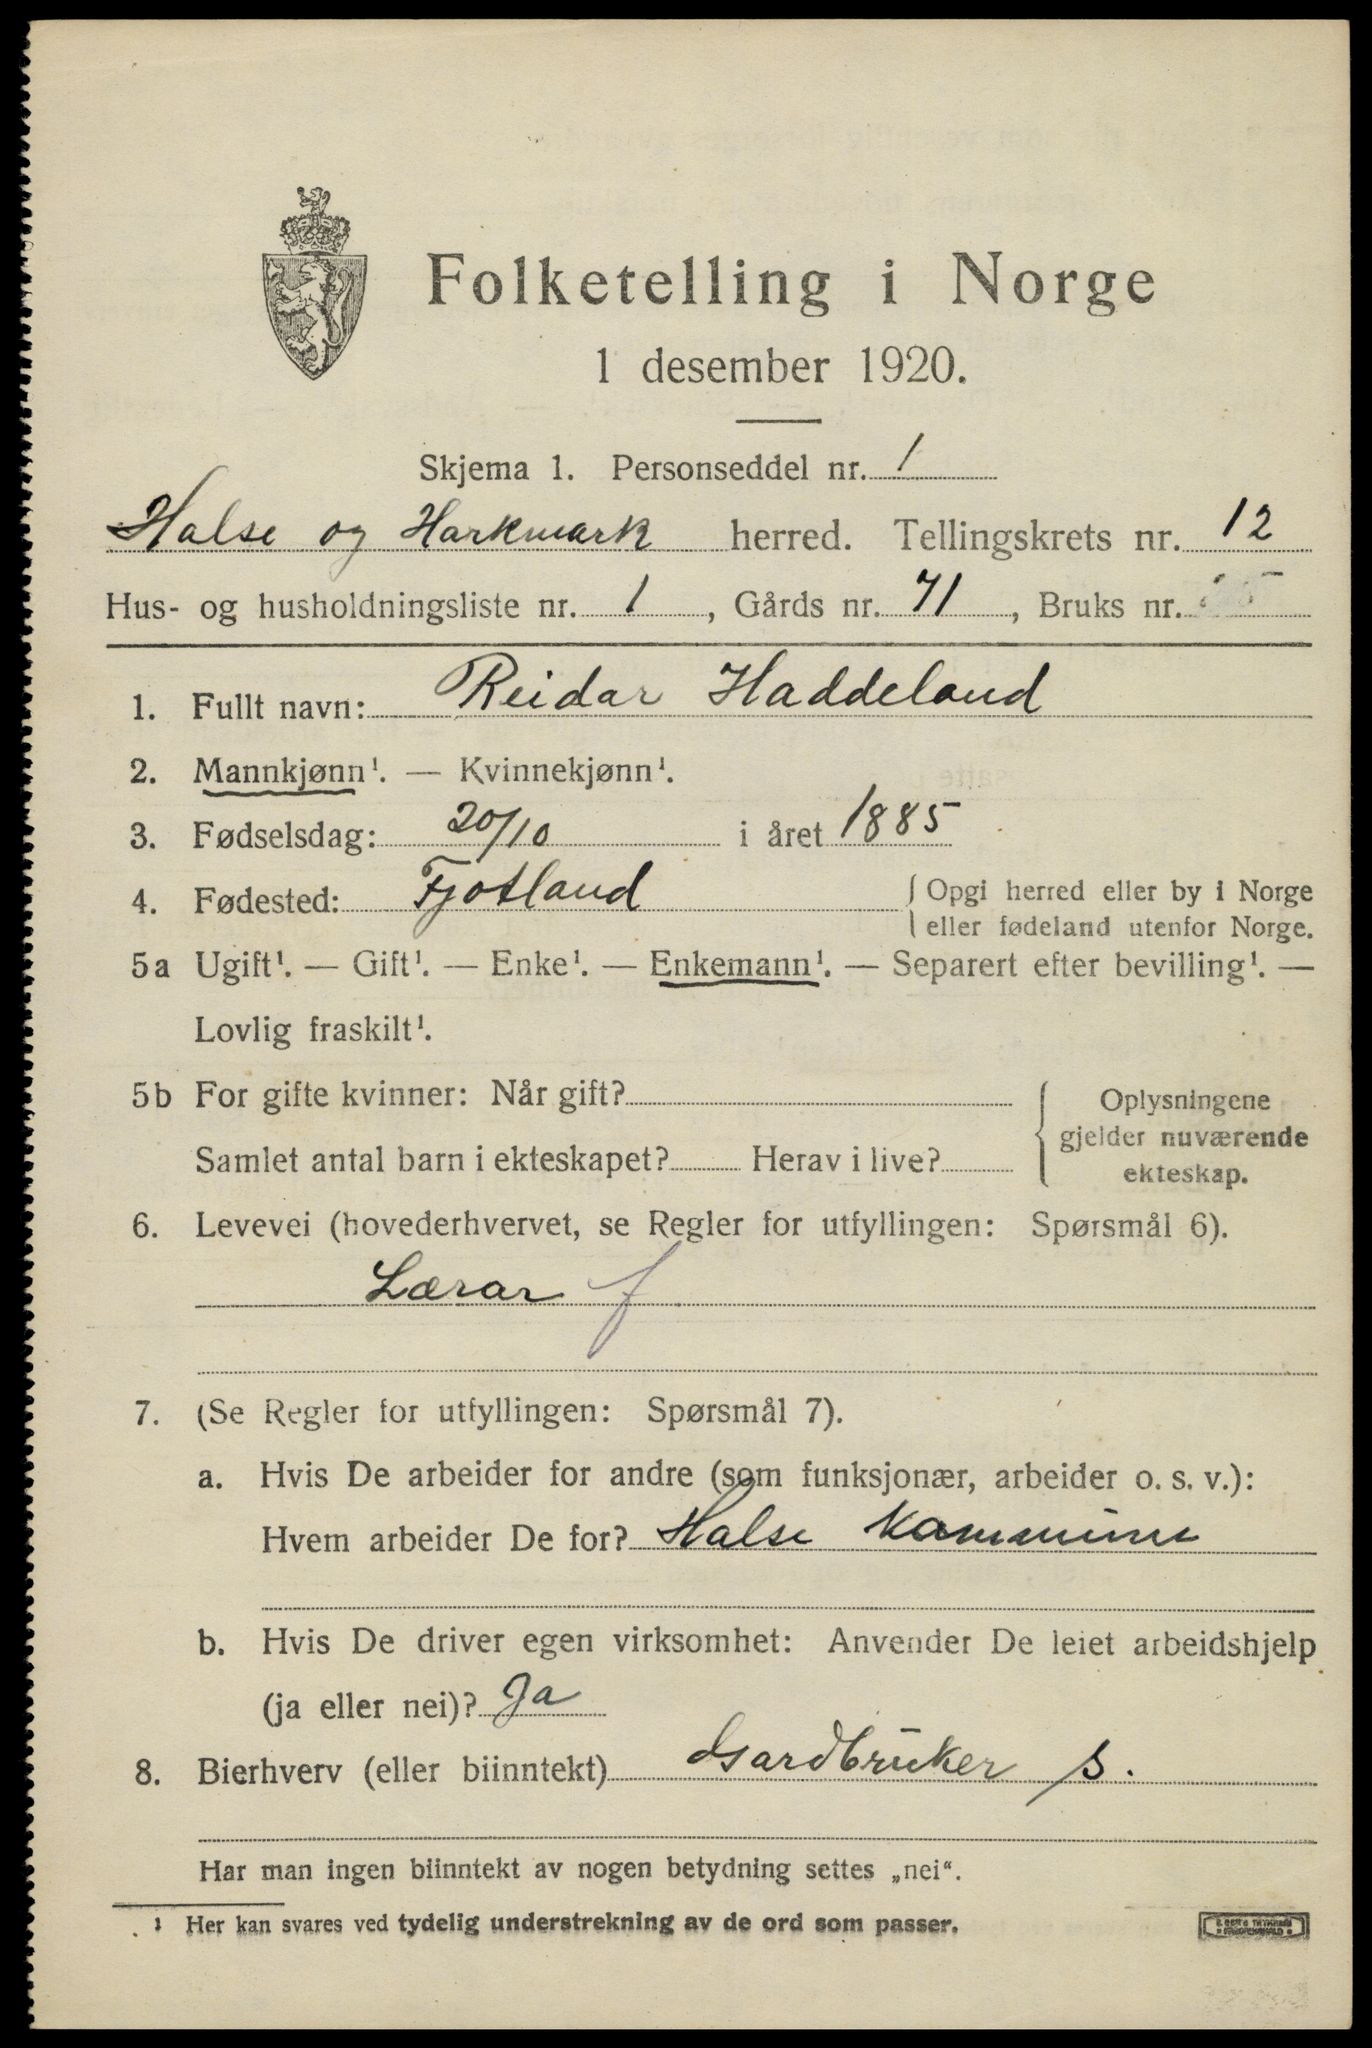 Folketelling i Norge
1 desember 1920.
Skjema 1. Personseddel nr. 1
Halse og Harkmark herred. Tellingskrets nr. 12
Hus- og husholdningsliste nr. 1, Gårds nr. 71, Bruks nr.
1. Fullt navn: Reidar Haddeland
2. Mannkjønn¹. — Kvinnekjønn¹.
3. Fødselsdag: 20/10 i året 1885
4. Fødested: Fjotland { Opgi herred eller by i Norge
eller fødeland utenfor Norge.
5a Ugift¹. — Gift¹. — Enke¹. — Enkemann¹. — Separert efter bevilling¹. —
Lovlig fraskilt¹.
5b For gifte kvinner: Når gift? { Oplysningene
gjelder nuværende
Samlet antal barn i ekteskapet? Herav i live? ekteskap.
6. Levevei (hovederhvervet, se Regler for utfyllingen: Spørsmål 6).
Lærar f
7. (Se Regler for utfyllingen: Spørsmål 7).
a. Hvis De arbeider for andre (som funksjonær, arbeider o. s. v.):
Hvem arbeider De for? Halse kommune
b. Hvis De driver egen virksomhet: Anvender De leiet arbeidshjelp
(ja eller nei)? Ja
8. Bierhverv (eller biinntekt) Gardbruker s.
Har man ingen biinntekt av nogen betydning settes „nei“.
¹ Her kan svares ved tydelig understrekning av de ord som passer.